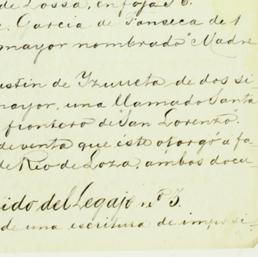 de Lossa, en foja 36.
c. Garcia de Fonseca de 1
mayor nombrado "Madre
ustin de Yzurreta de dos si-
mayor, una llamado Santa
frontero de San Lorenzo.
de venta que éste otorgó a fa-
de Rio de Loza, ambos docu
ido del Legajo n.º 3.
de una escritura de imposi-